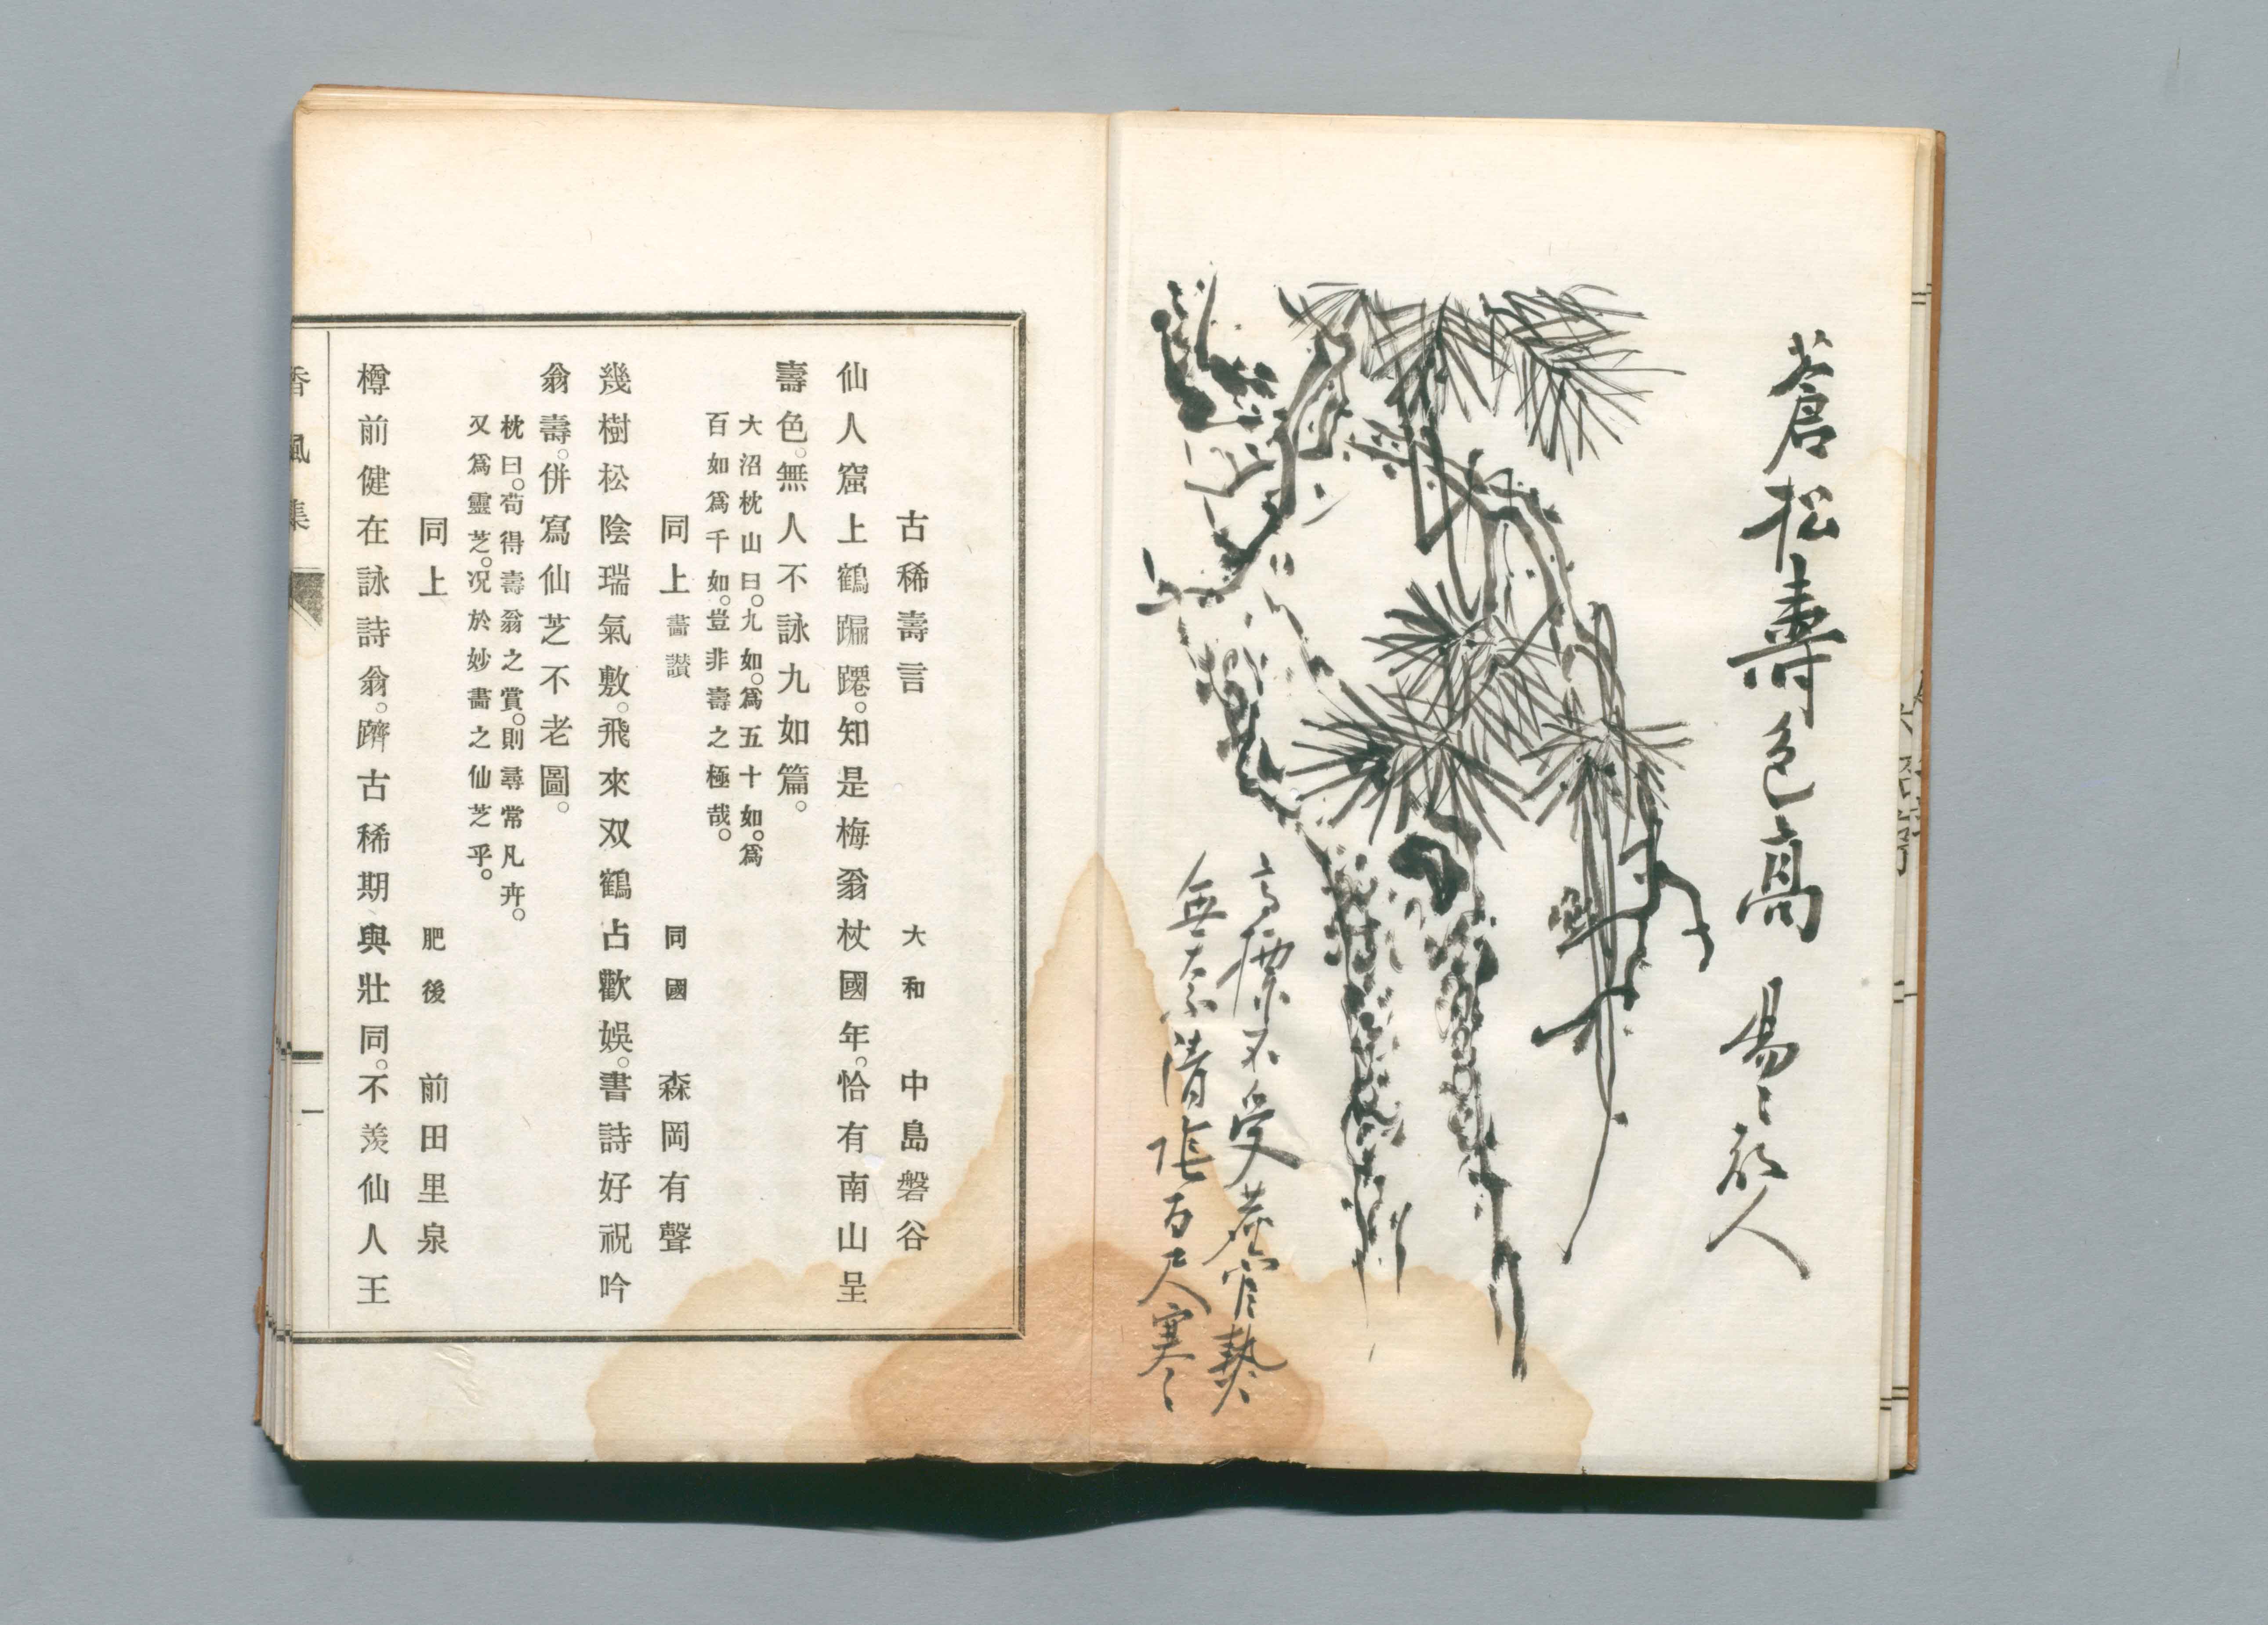 蒼松壽色高
高標不受
無奈清陰百尺寒〻
古稀壽言 大和 中島磐谷
仙人窟上鶴蹁躚。知是梅翁杖國年。恰有南山呈
壽色。無人不詠九如篇。
大沼枕山曰。九如。爲五十如。爲
百如爲千如。豈非壽之極哉。
同上 畵讃 同國 森岡有聲
幾樹松陰瑞氣敷。飛來双鶴占歡娯。書詩好祝吟
翁壽。併寫仙芝不老圖。
枕曰。苟得壽翁之賞。則尋常凡卉。
又爲靈芝。况於妙畵之仙芝乎。
同上 肥後 前田里泉
樽前健在詠詩翁。躋古稀期與壯同。不羨仙人王
香風集
一